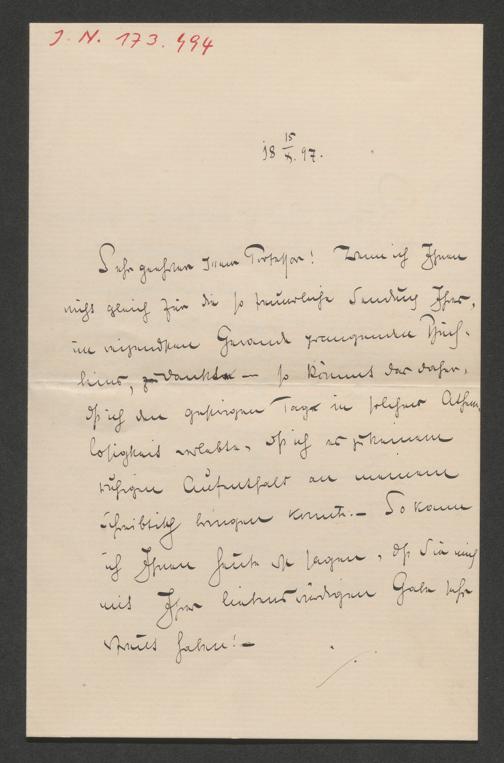 J. N. 173.494
18 15/X. 97.
Sehr geehrter Herr Professor! Wenn ich Ihnen
nicht gleich für die so freundliche Sendung Ihres,
im reizendsten Gewande prangenden Büch-
leins, dankte — so kommt das daher,
dß ich den gestrigen Tag in solcher Athem-
losigkeit verlebte, dß ich es zu keinem
ruhigen Aufenthalt an meinem
Schreibtisch bringen konnte. — So kann
ich Ihnen heute erst sagen, dß Sie mich
mit Ihrer liebenswürdigen Gabe sehr
erfreut haben! —